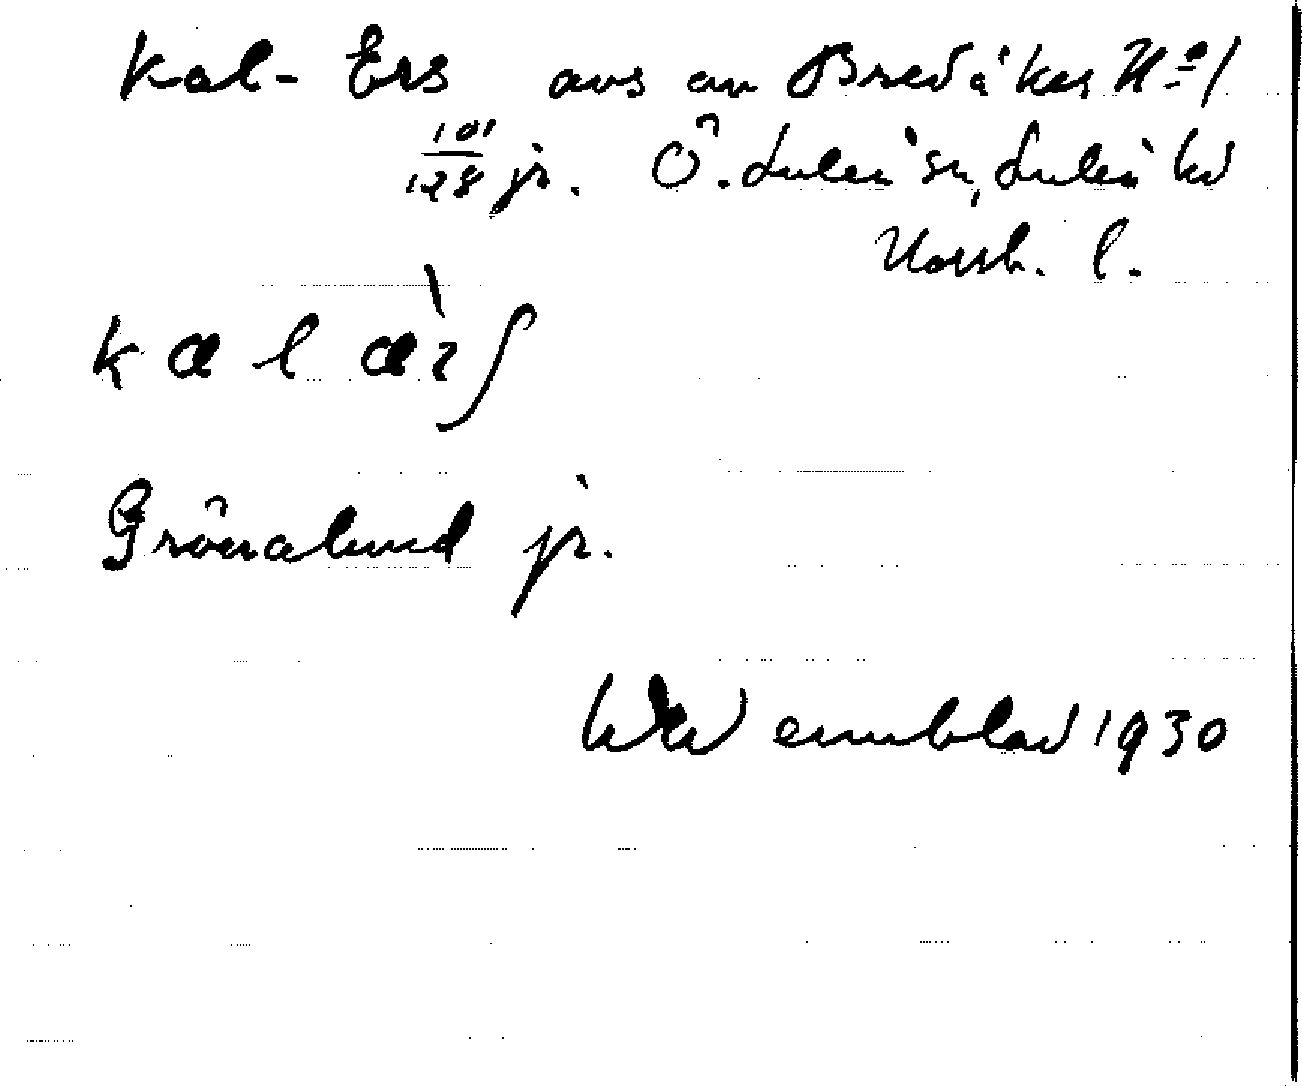 Kal-Ers avs av Bredåker Nº 1
101/128 jr. Ö. Luleå sn, Luleå kd
Norrb. l.
k a l æ̀ʃ
Grönalund jr.
Wennblad 1930